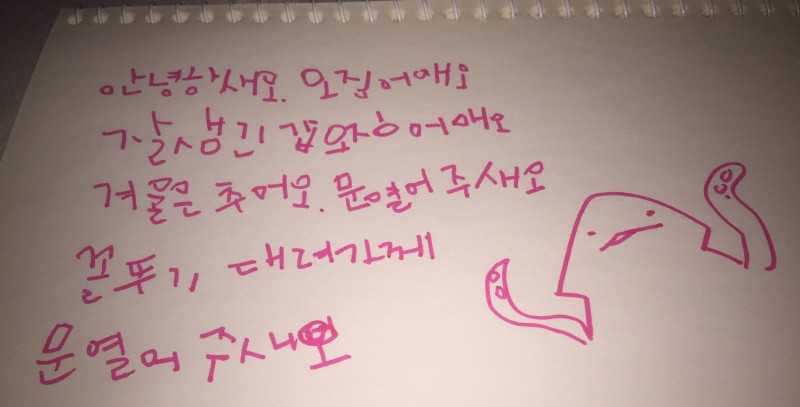 안녕하새요. 오징어애요
잘생긴 갑오징어애요
겨울은 추어오. 문열어 주새오
꼴뚜기 대려가제
문열어 주새오